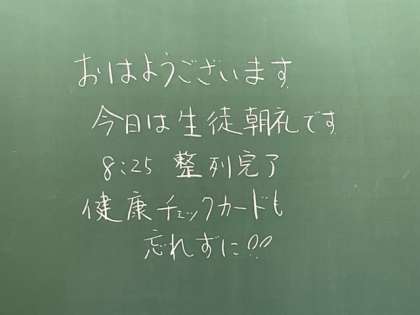 おはようございます
今日は生徒朝礼です
8:25 整列完了
健康チェックカードも
忘れずに!!